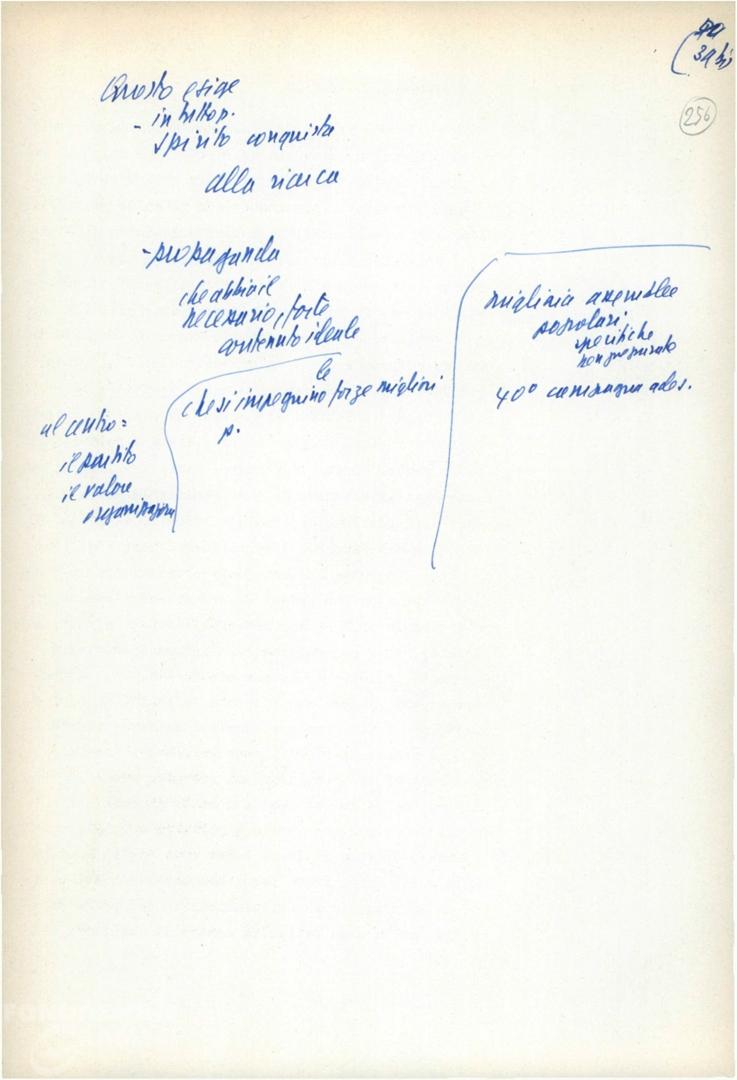 (39 bis
256
Questo esige
in tutto p.
- spirito conquista
alla ricerca
- propaganda
che abbia il
necessario, forte
contenuto ideale
le
che si impegnino forze migliori
p.
al centro =
il partito
il valore
organizzazione
migliaia assemblee
popolari
specifiche
40° campagna ades.